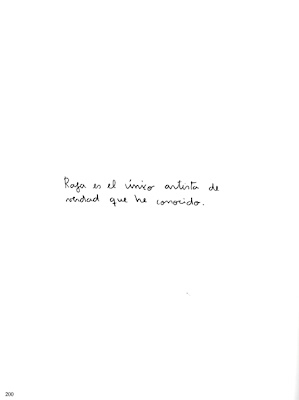 Rafa es el único artista de
verdad que he conocido.
200